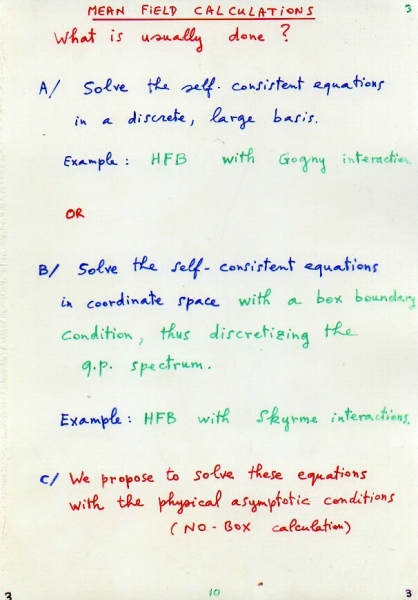 MEAN FIELD CALCULATIONS 3
What is usually done ?
A/ Solve the self-consistent equations
in a discrete, large basis.
Example : HFB with Gogny interaction
OR
B/ Solve the self-consistent equations
in coordinate space with a box boundary
condition, thus discretizing the
q.p. spectrum.
Example : HFB with Skyrme interactions.
C/ We propose to solve these equations
with the physical asymptotic conditions
(NO-BOX calculation)
3 10 3